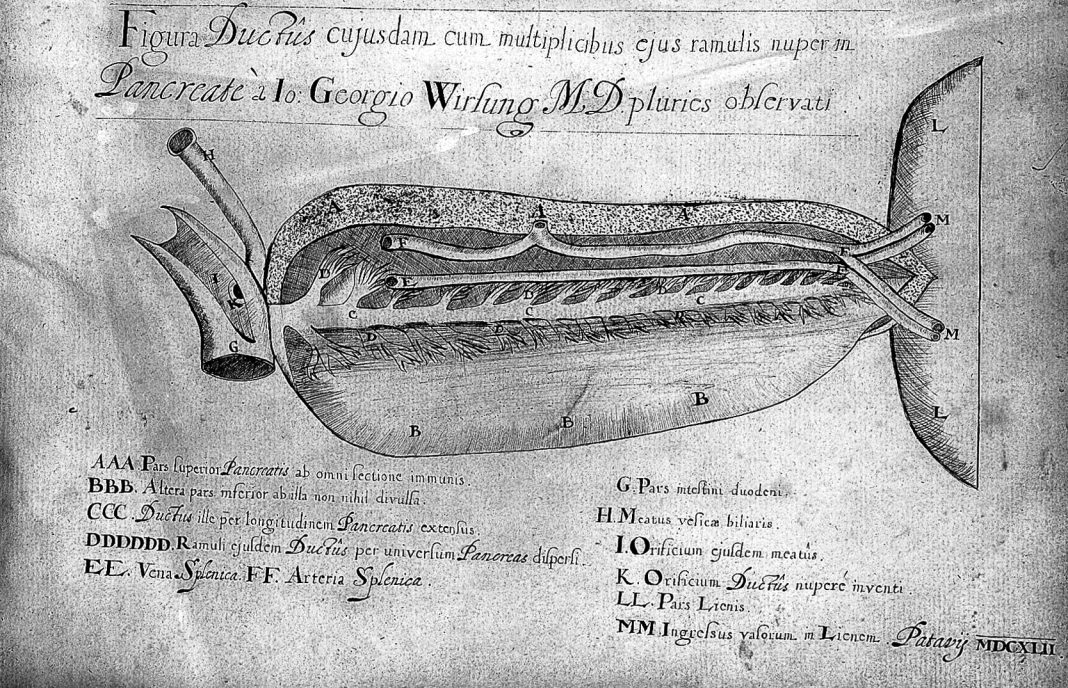 Figura Ductûs cujusdam cum multiplicibus ejus ramulis nuper in
Pancreate à Io: Georgio Wirsung M.D pluries observati.
H
A
A
A
A
L
M
F
F
I
D
E
E
K
D
K
C
C
C
G
D
D
K
M
B
B
B
L
AAA. Pars superior Pancreatis ab omni sectione immunis.
BBB. Altera pars inferior ab illa non nihil divulsa.
CCC. Ductus ille per longitudinem Pancreatis extensus.
DDDDDD. Ramuli ejusdem Ductûs per universum Pancreas dispersi.
EE. Vena Splenica. FF. Arteria Splenica.
G. Pars intestini duodeni.
H. Meatus vesicæ biliaris.
I. Orificium ejusdem meatûs.
K. Orificium Ductûs nuperé inventi.
LL. Pars Lienis.
MM. Ingressus vasorum in Lienem. Patavij MDCXLII.